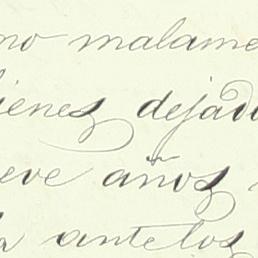 mo malame
ienes dejad
eve años
la antelos